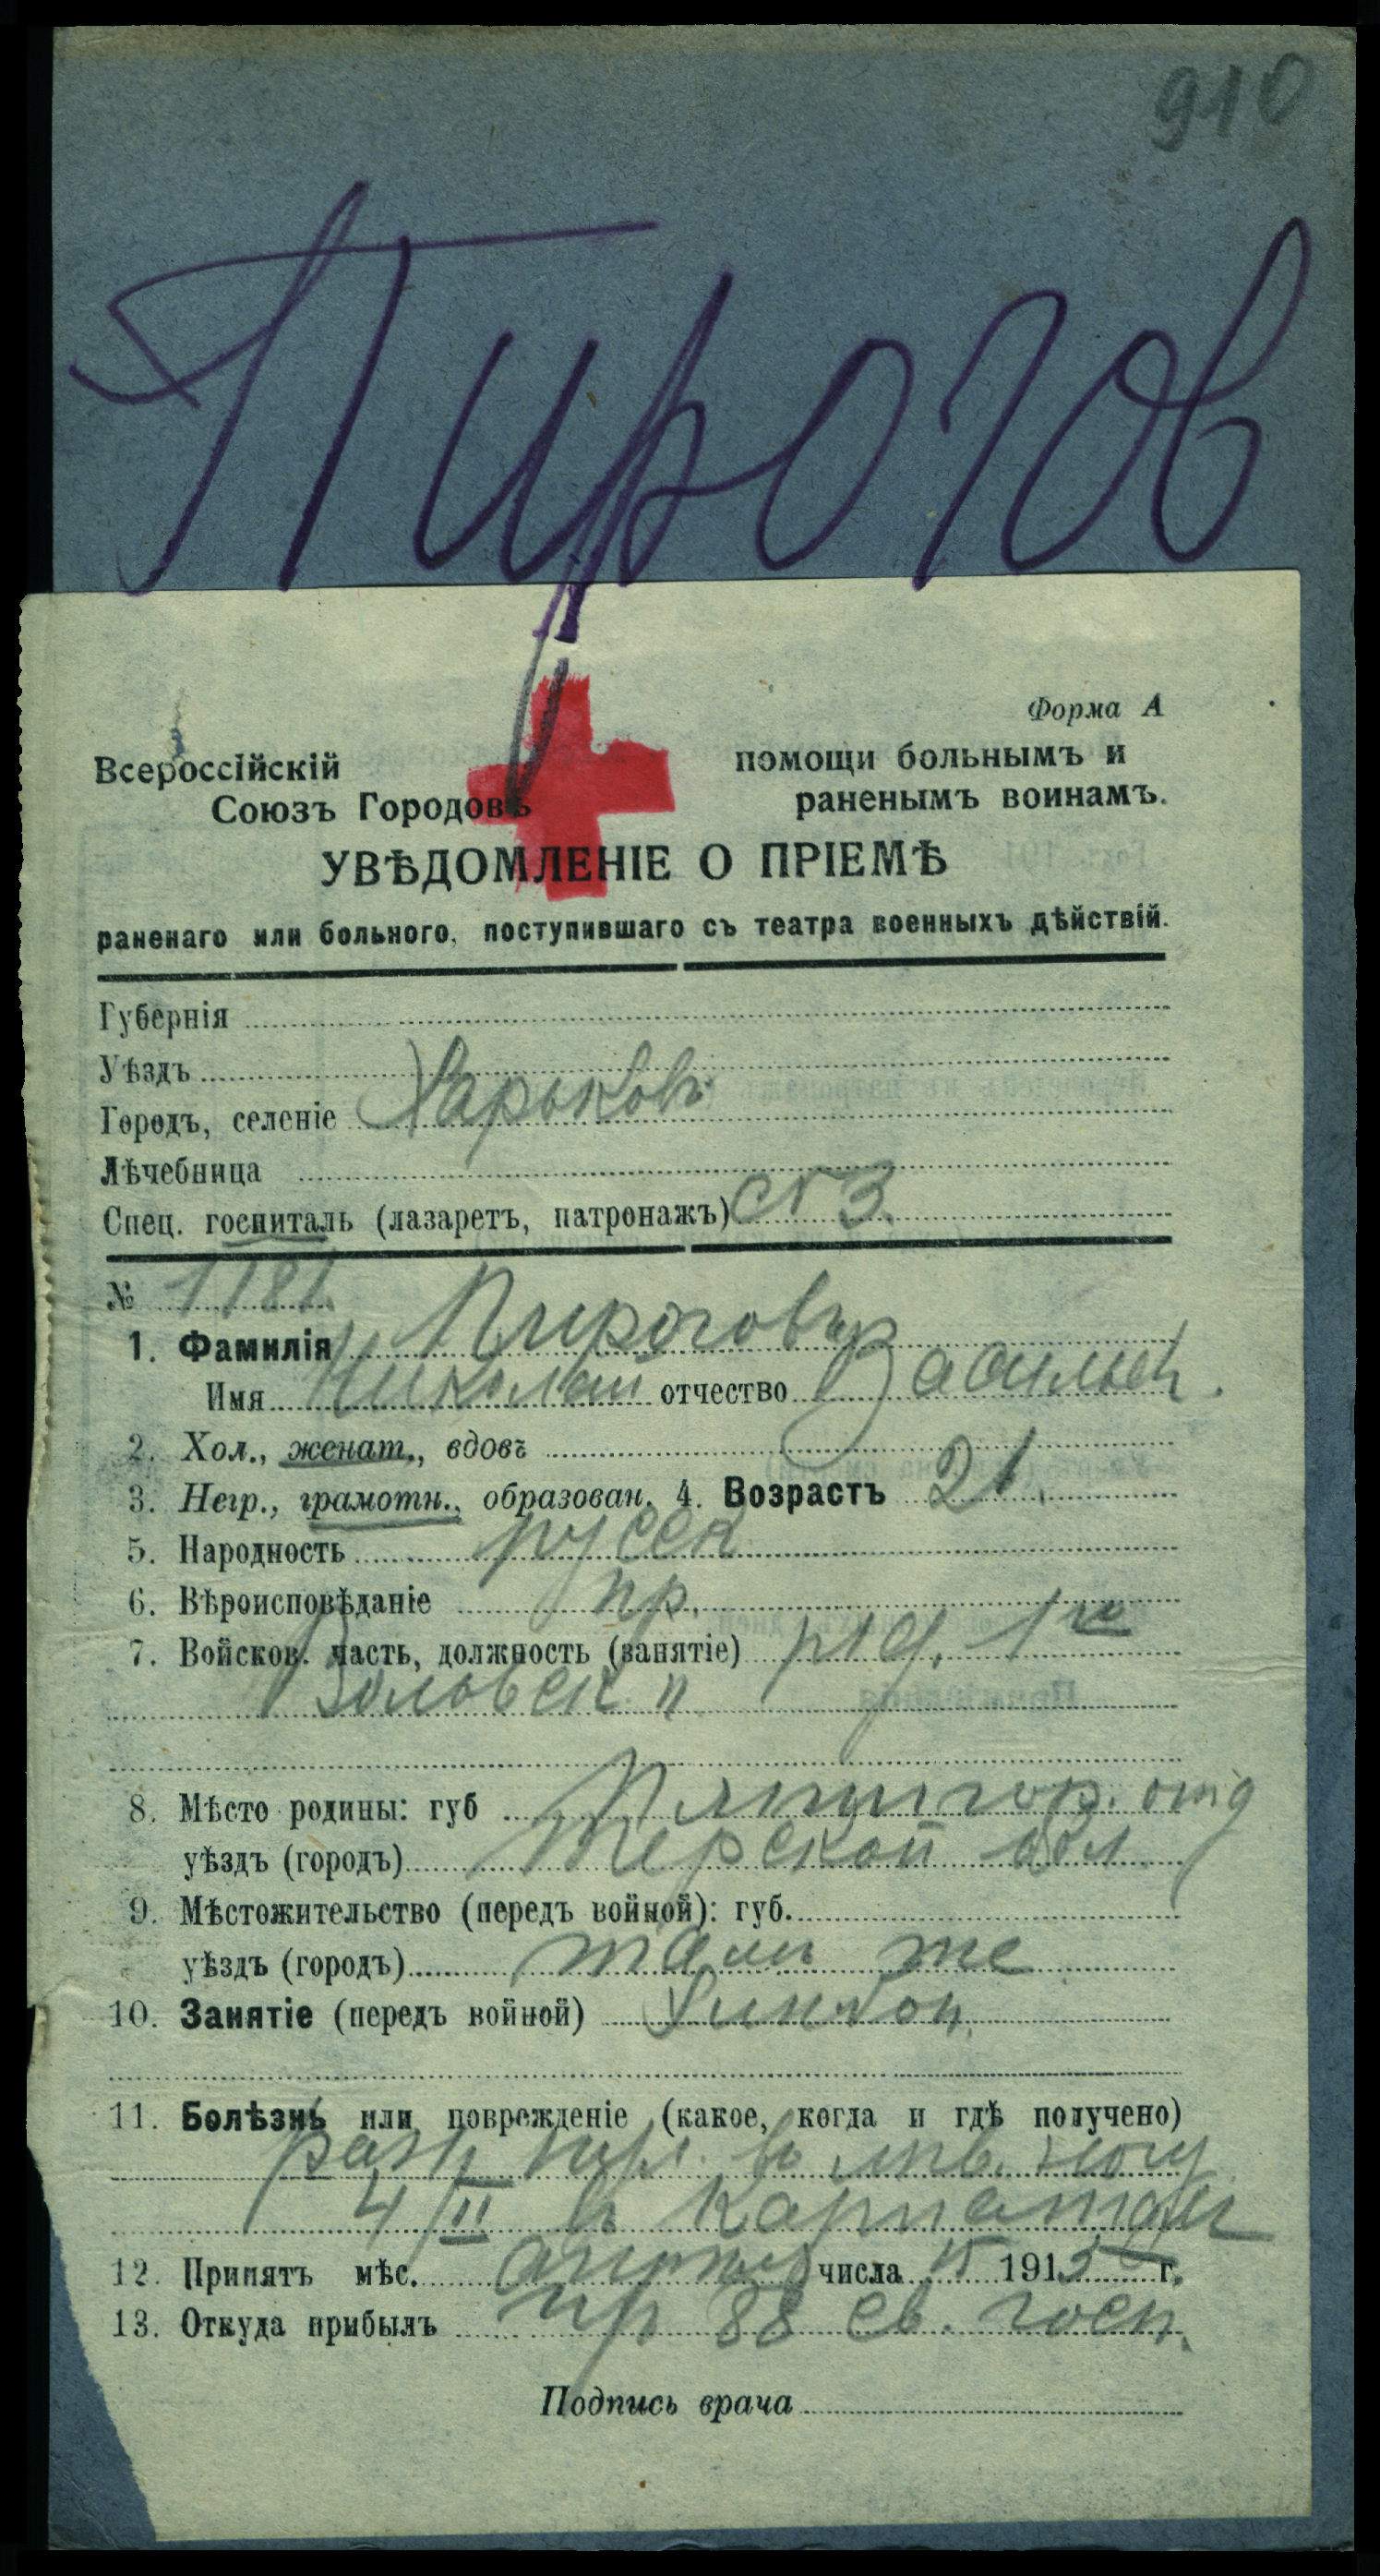 910
Пирогов
Форма А
Всероссійскій помощи больнымъ и
Союзъ Городовъ раненымъ воинамъ.
УВѢДОМЛЕНІЕ О ПРІЕМѢ
раненаго или больного, поступившаго съ театра военныхъ дѣйствій.
Губернія
Уѣздъ
Городъ, селеніе Харьковъ
Лѣчебница
Спец. госпиталь (лазаретъ, патронажъ) №3.
№
1. Фамилія Пироговъ
Имя Николай отчество Васильев.
2. Хол., женат., вдовъ
3. Негр., грамотн., образован. 4. Возрастъ 21.
5. Народность русск
6. Вѣроисповѣданіе пр.
7. Войсков. часть, должность (занятіе) ряд. 1го
Волгск. п
8. Мѣсто родины: губ Пятигор. отд
уѣздъ (городъ) Терской обл.
9. Мѣстожительство (передъ войной): губ.
уѣздъ (городъ) там же
10. Занятіе (передъ войной)
11. Болѣзнь или поврежденіе (какое, когда и гдѣ получено)
ран. пул. в лев. ногу
4/II в Карпатах
12. Принятъ мѣс. апрѣля числа 1915 г.
13. Откуда прибылъ 88 св. госп.
Подпись врача